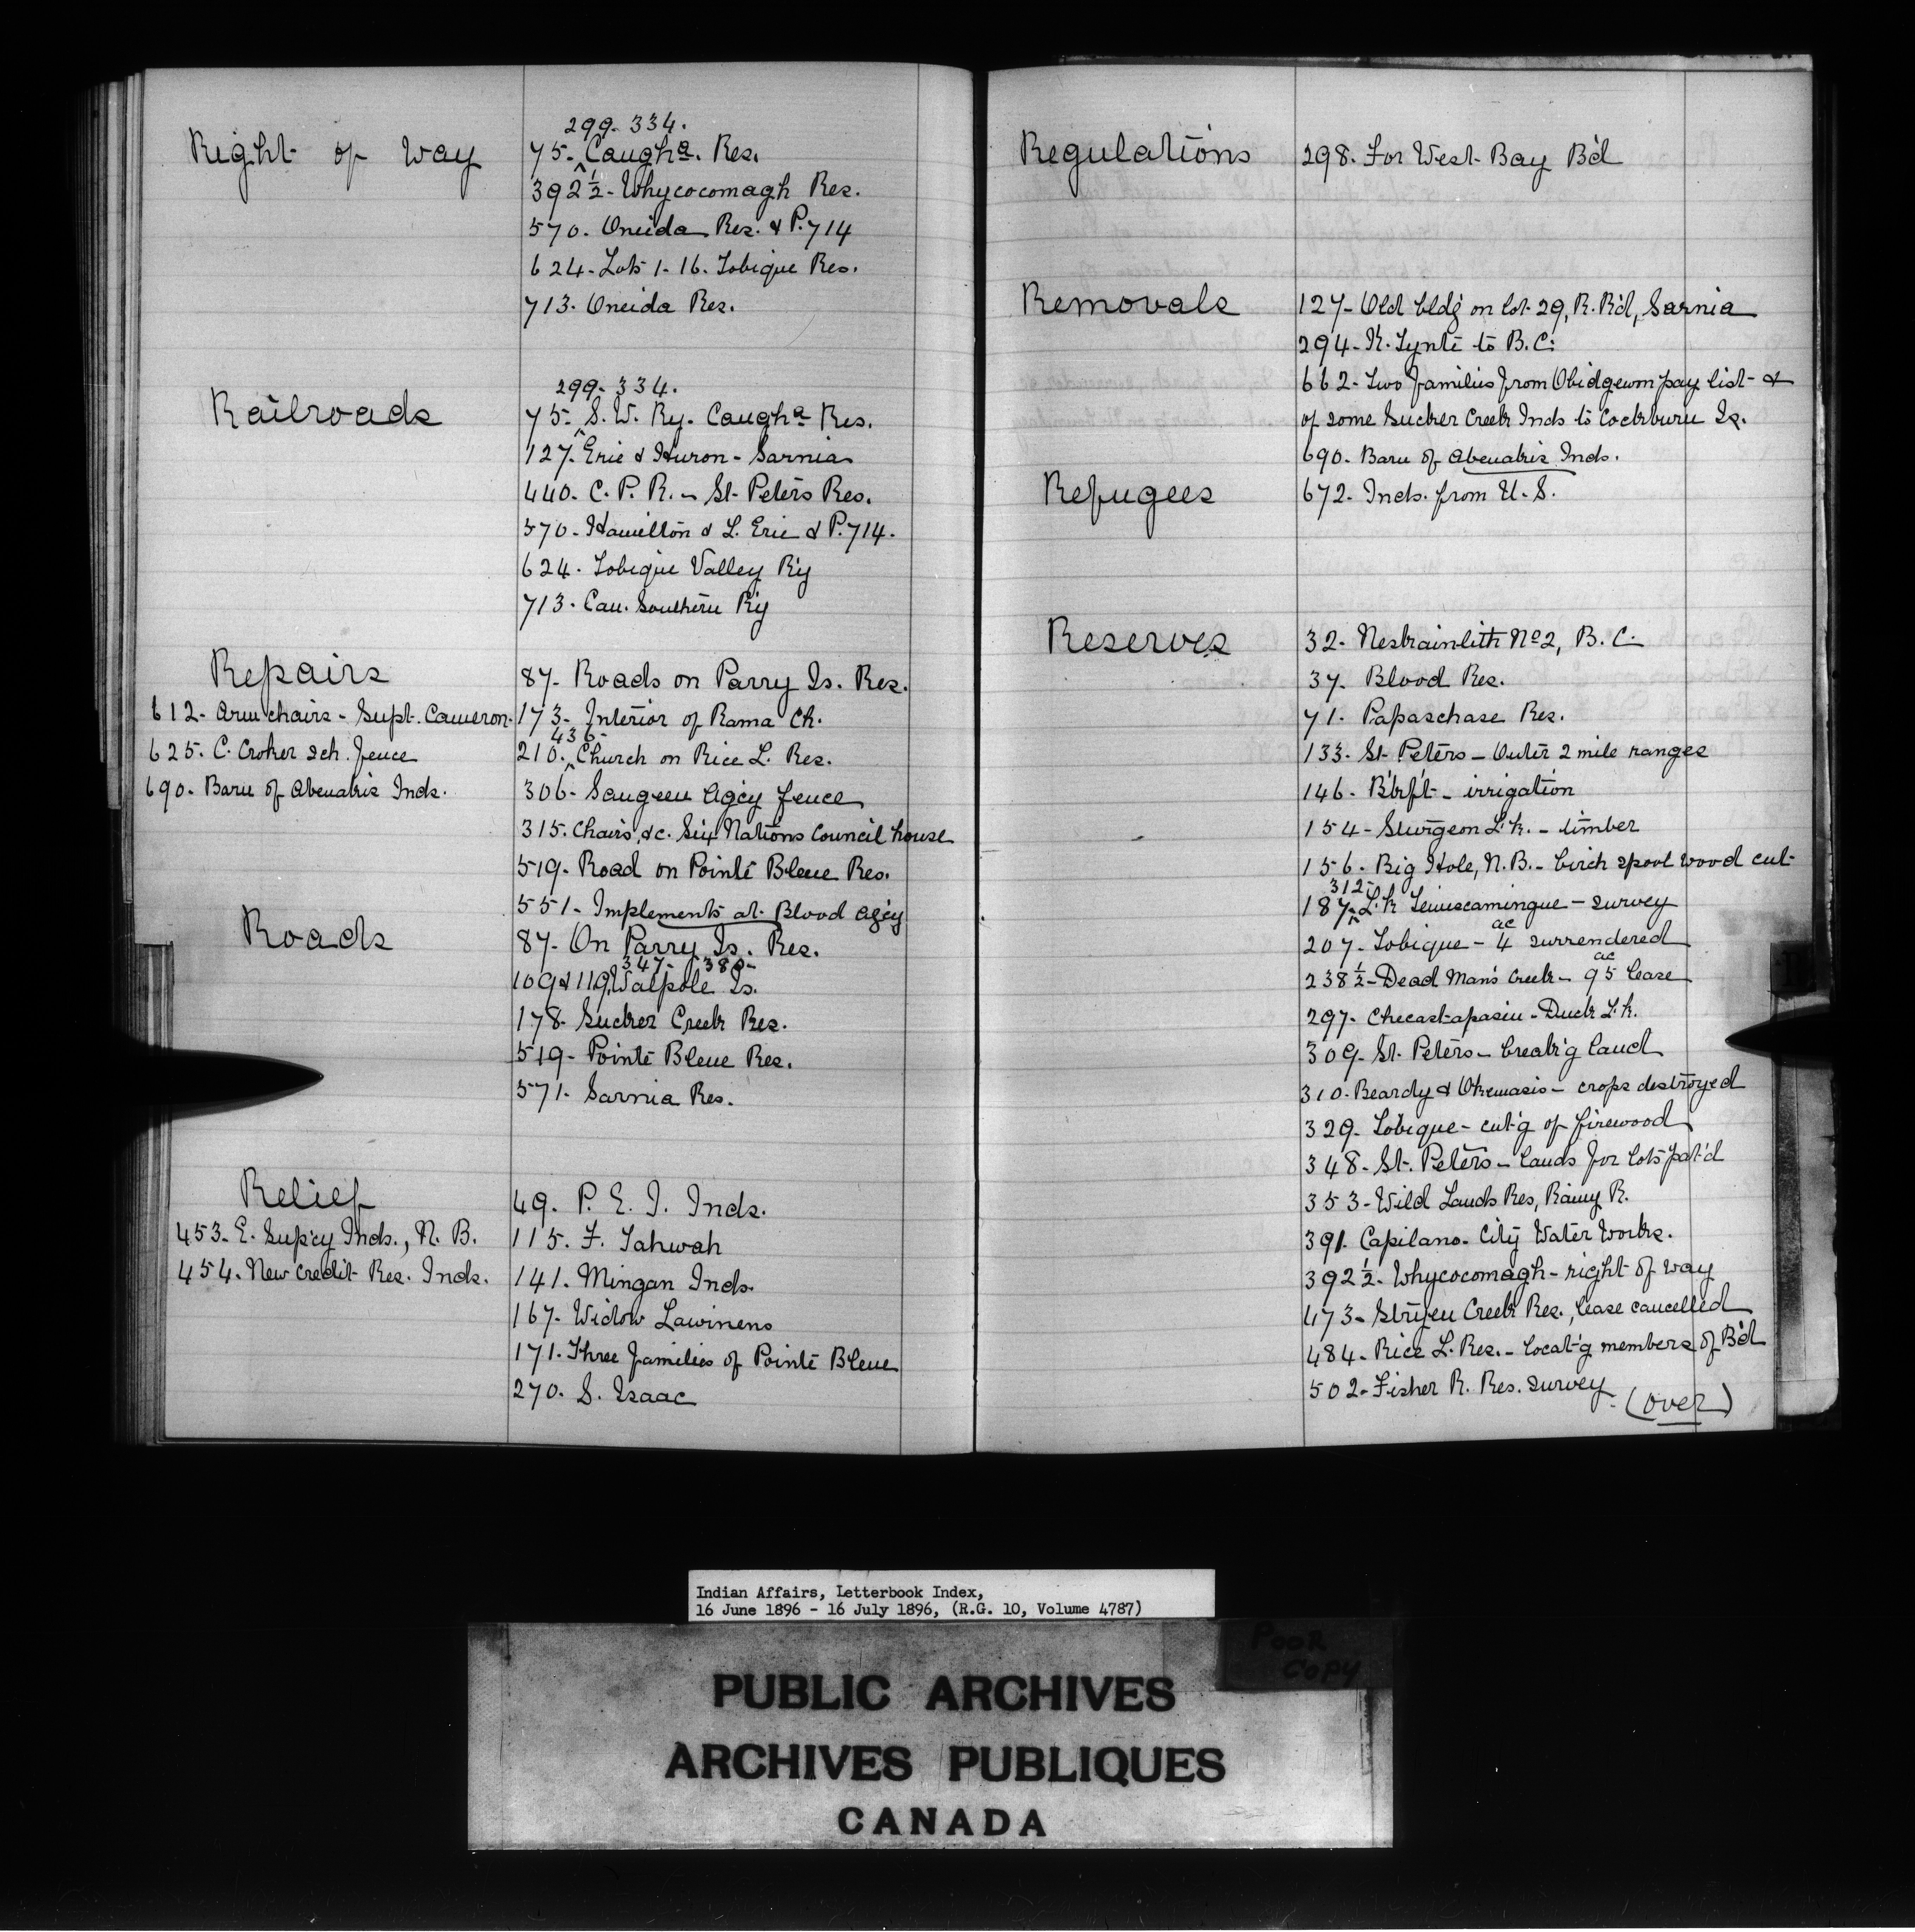 Right of Way
299-334.
75. Caugha. Res.
392½- Whycocomagh Res.
570. Oneida Res. & P.714
624- Lots 1-16. Tobique Res.
713. Oneida Res.
Railroads
299-334.
75. S.W. Ry. Caugha Res.
127. Erie & Huron - Sarnia
440. C.P.R. - St. Peters Res.
570. Hamilton & L. Erie & P.714.
624. Tobique Valley R'y
713. Can. Southern R'y
Repairs
87- Roads on Parry Is. Res.
612- Arm chairs - Supt. Cameron.
173- Interior of Rama Ch.
436-
625. C. Croker sch. fence
210. Church on Rice L. Res.
690. Barn of Abenakis Inds.
306- Saugeen Agcy fence
315. Chairs, &c. Six Nations Council house
519- Road on Pointe Bleue Res.
551- Implements at Blood Agcy
Roads
87- On Parry Is. Res.
347- 380-
109 & 119, Walpole Is.
178- Sucker Creek Res.
519- Pointe Bleue Res.
571. Sarnia Res.
Relief
49. P.E.I. Inds.
453- E. Sup'cy Inds., N.B.
115. F. Tahwah
454. New Credit Res. Inds.
141. Mingan Inds.
167. Widow Lawinens
171. Three families of Pointe Bleue
270. S. Isaac
Regulations
298. For West Bay B'd
Removals
127- Old bldg on lot 29, R. R'd, Sarnia
294- to B.C.
662- Two families from Obidgewin pay list &
of some Sucker Creek Inds to Cockburn Is.
690. Barn of Abenakis Inds.
Refugees
672- Inds. from U.S.
Reserves
32- Neskainlith No 2, B.C.
37. Blood Res.
71. Papaschase Res.
133- St. Peters - Outer 2 mile ranges
146- B'kf't - irrigation
154- Sturgeon L'k. - timber
156- Big Hole, N.B. - birch spool wood cut
312-
187- L'k Temiscamingue - survey
207- Tobique - 4 ac surrendered
238½- Dead Man's Creek - 95 ac lease
297- Checastapasin - Duck L'k.
309- St. Peters - break'g land
310. Beardy & Okemasis - crops destroyed
329- Tobique - cut'g of firewood
348- St. Peters - lands for lots pat'd
353- Wild Lands Res, Rainy R.
391. Capilano - City Water Works.
392½- Whycocomagh - right of way
473- Stryen Creek Res., lease cancelled
484- Rice L. Res. - locat'g members of B'd
502- Fisher R. Res. survey
(over)
Indian Affairs, Letterbook Index,
16 June 1896 - 16 July 1896, (R.G. 10, Volume 4787)
POOR
COPY
PUBLIC ARCHIVES
ARCHIVES PUBLIQUES
CANADA